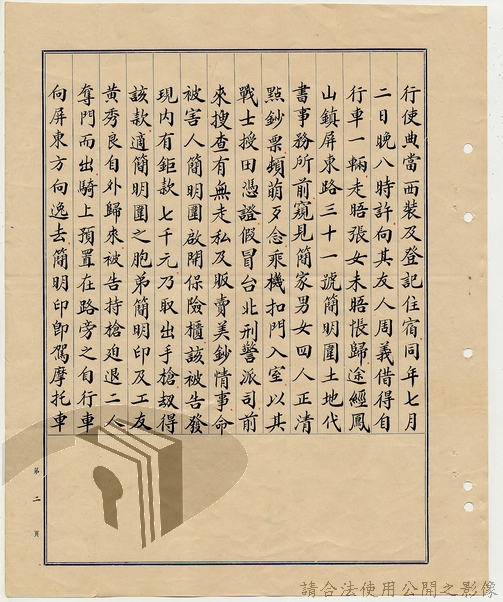 行使典當西裝及登記住宿同年七月
二日晚八時許向其友人周義借得自
行車一輛走晤張女未晤悵歸途經鳳
山鎮屏東路三十一號簡明圍土地代
書事務所前窺見簡家男女四人正清
點鈔票頓萌歹念乘機扣門入室以其
戰士授田憑證假冒台北刑警派司前
來搜查有無走私及販賣美鈔情事命
被害人簡明圍啟開保險櫃該被告發
現內有鉅款七千元乃取出手槍刼得
該款適簡明圍之胞弟簡明印及工友
黃秀良自外歸來被告持槍迫退二人
奪門而出騎上預置在路旁之自行車
向屏東方向逸去簡明印即駕摩托車
第二頁
請合法使用公開之影像